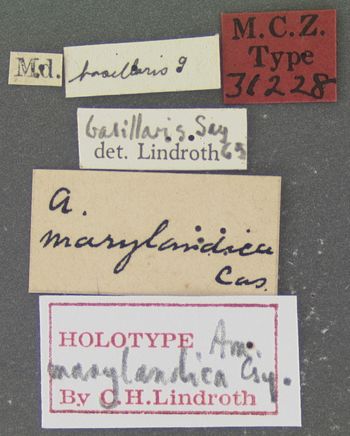 Md.
basillaris
M.C.Z.
Type
31228
basillaris Say
det. Lindroth 63
a.
marylandica
Cas.
HOLOTYPE Am.
marylandica Csy.
By C.H.Lindroth